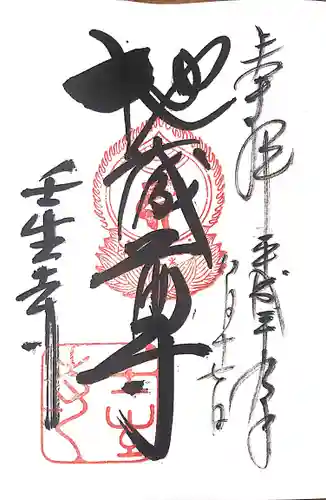 奉拝
平成三十年
月十七日
地蔵尊
壬生寺